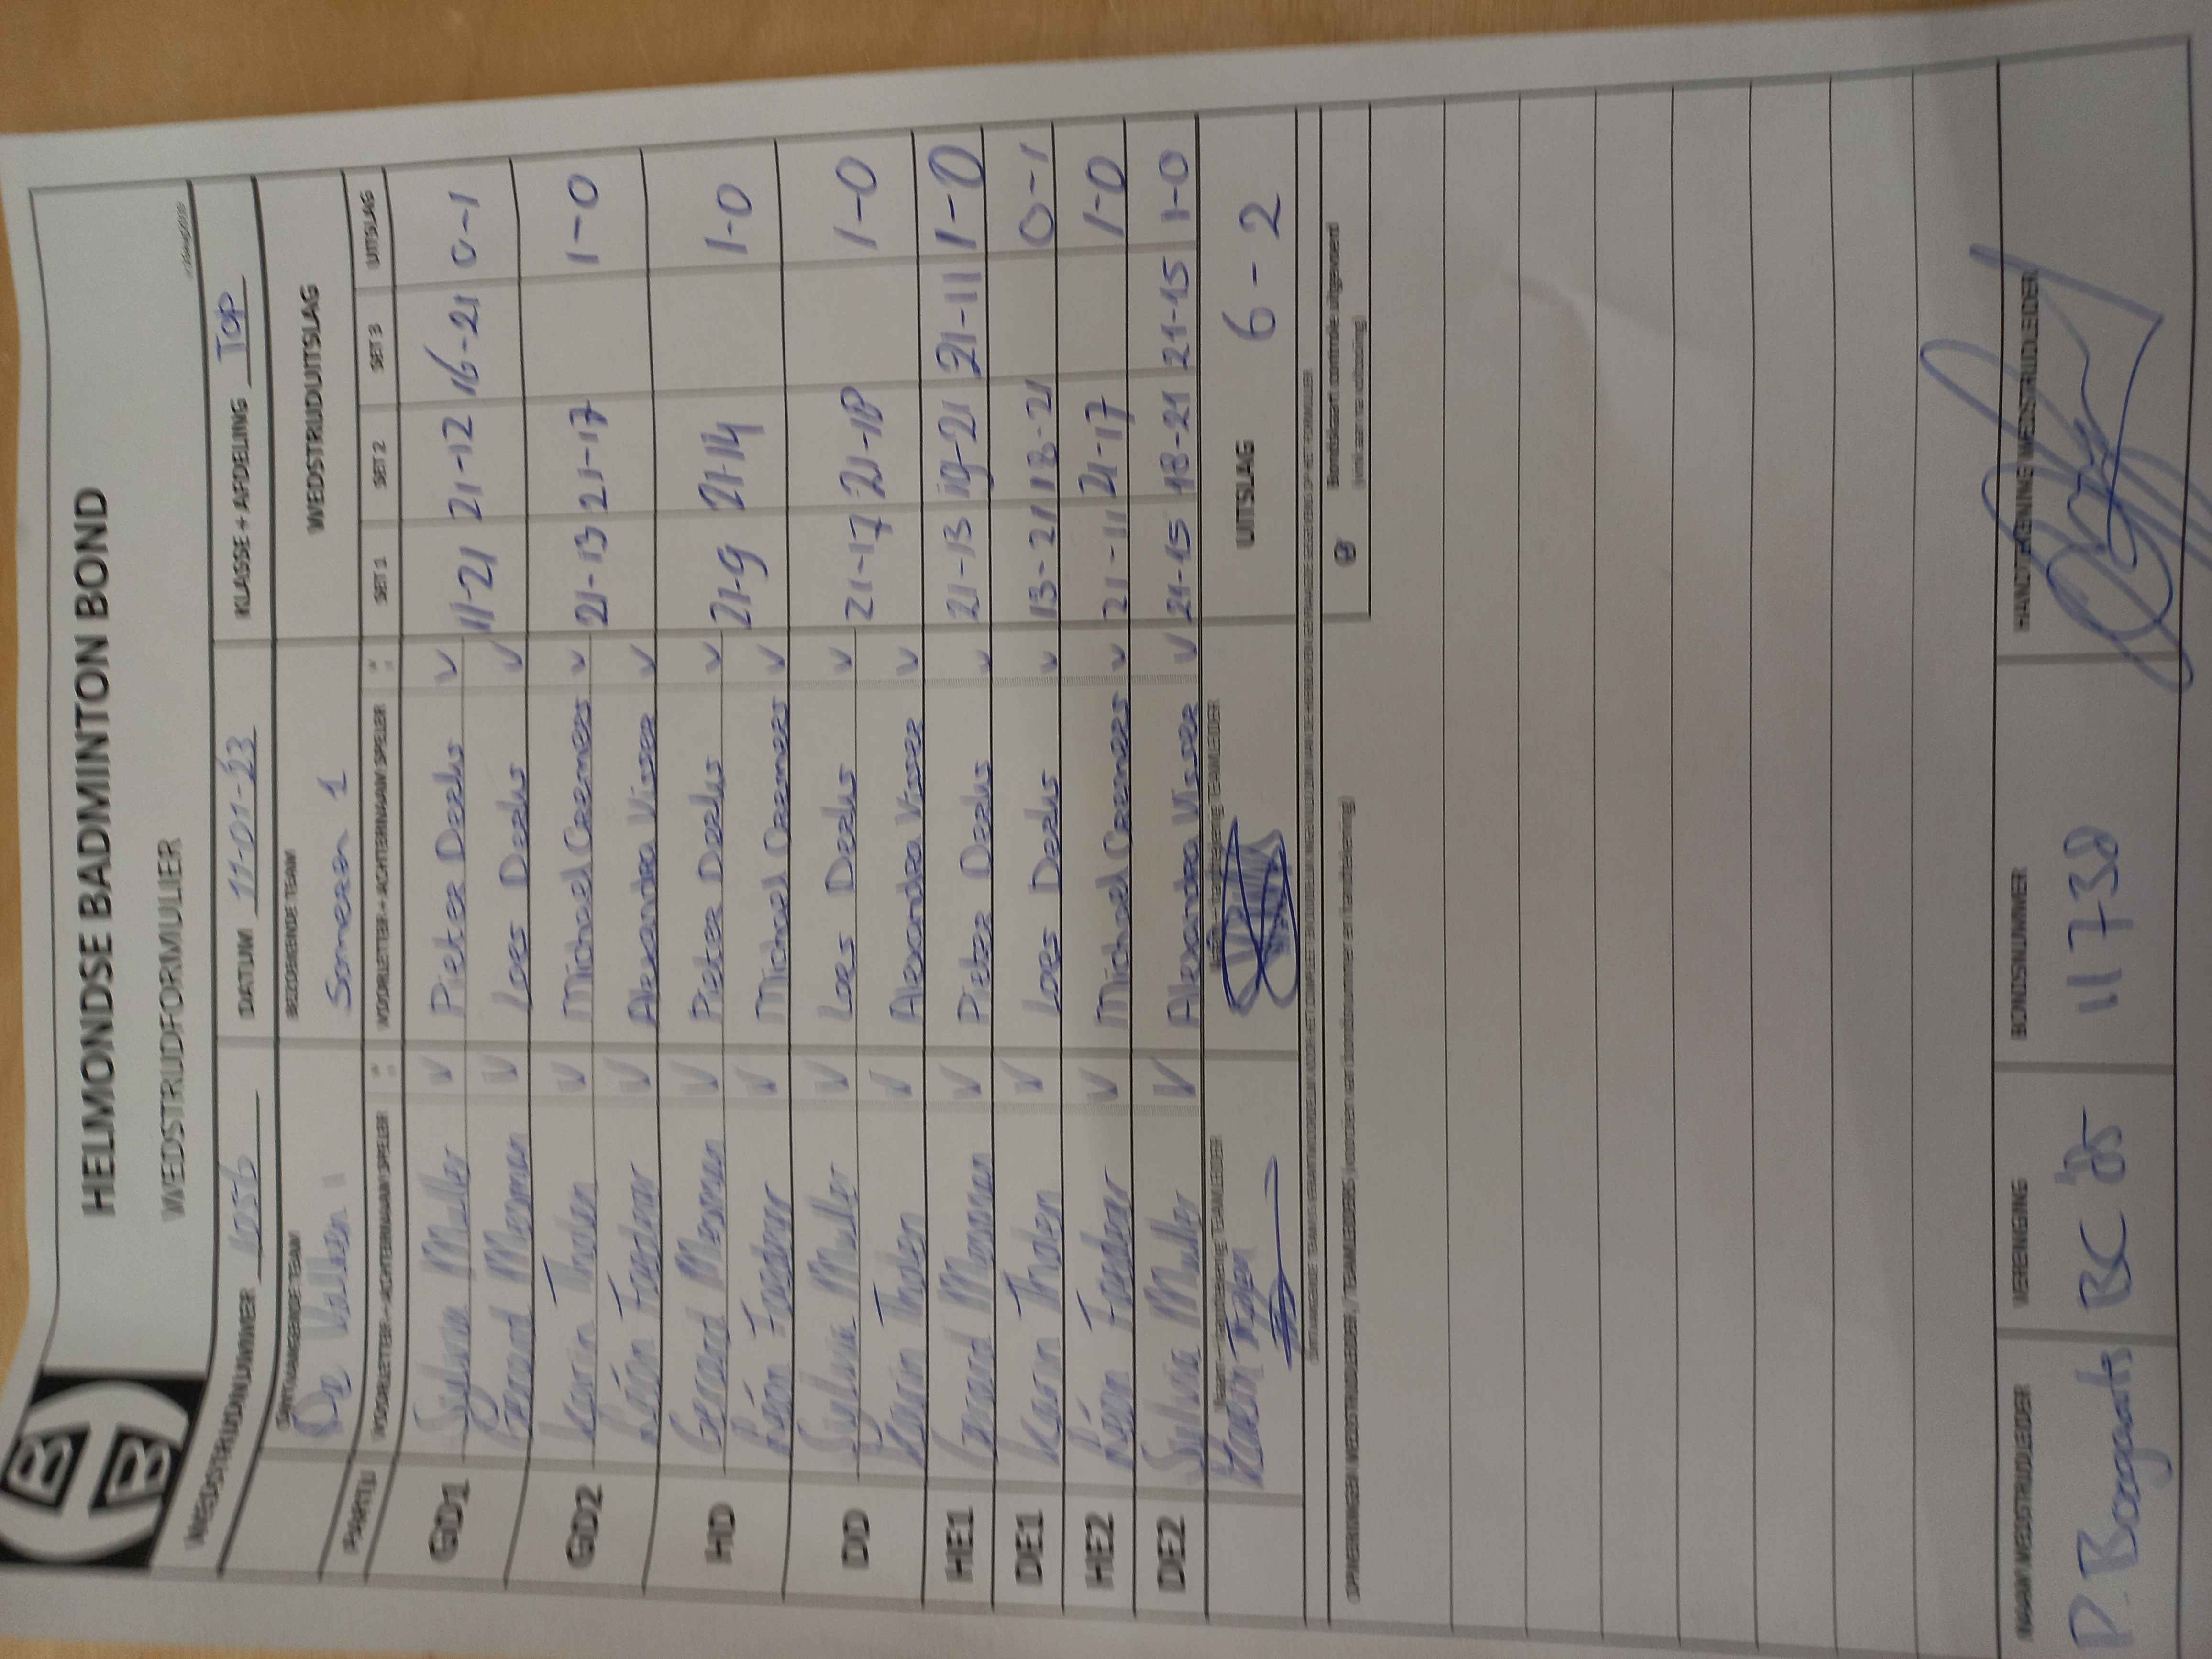 HELMONDSE BADMINTON BOND
WEDSTRIJDFORMULIER
WEDSTRIJDNUMMER 1056 DATUM 11-01-23 KLASSE + AFDELING Top
ONTVANGENDE TEAM BEZOEKENDE TEAM WEDSTRIJDUITSLAG
De Vallei 1 Someren 1
PARTIJ VOORLETTER + ACHTERNAAM SPELER VOORLETTER + ACHTERNAAM SPELER SET 1 SET 2 SET 3 UITSLAG
GD1 Sylvia Muller V Pieter Derks V 11-21 21-12 16-21 0-1
Gerard Mesman V Loes Derks V
GD2 Karin Tholen V Michael Coenees V 21-13 21-17 1-0
V Alexandra Visser V
HD Gerard Mesman V Pieter Derks V 21-9 21-14 1-0
V Michael V
DD Sylvia Muller V Loes Derks V 21-17 21-18 1-0
Karin Tholen V Alexandra Visser V
HE1 Gerard Mesman V Pieter Derks V 21-13 19-21 21-11 1-0
DE1 Karin Tholen V Loes Derks V 13-21 18-21 0-1
HE2 V Michael V 21-11 21-17 1-0
DE2 Sylvia Muller V Alexandra Visser V 21-15 18-21 21-15 1-0
Naam + handtekening TEAMLEIDER Naam + handtekening TEAMLEIDER UITSLAG 6-2
Karin Tholen
Bondskaart controle uitgevoerd
OPMERKINGEN WEDSTRIJDLEIDER / TEAMLEIDERS
NAAM WEDSTRIJDLEIDER VERENIGING BONDSNUMMER HANDTEKENING WEDSTRIJDLEIDER
P. Boogaarts BC '85 11738